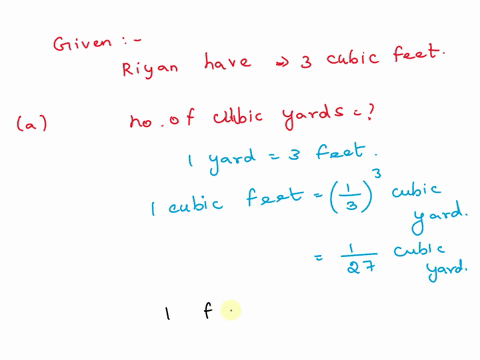 Given :-
Riyan have → 3 cubic feet.
(a) no. of cubic yards = ?
1 yard = 3 feet.
1 cubic feet = (1/3)^3 cubic yard.
= 1/27 cubic yard.
1 f